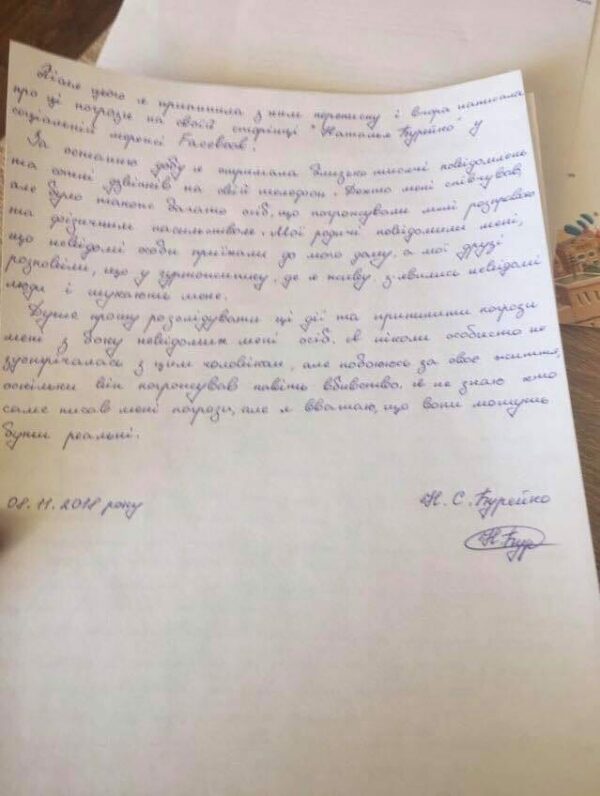 Після цього я припинила з ним переписку і вчора написала
про ці погрози на своїй сторінці "Наталья Бурейко" у
соціальній мережі Facebook.
За останню добу я отримала близько тисячі повідомлень
та сотні дзвінків на свій телефон. Дехто мені співчував,
але було також багато осіб, що погрожували мені розправою
та фізичним насильством. Мої родичі повідомили мені,
що невідомі особи приїхали до мого дому, а мої друзі
розповіли, що у гуртожитку, де я живу, з'явились невідомі
люди і шукають мене.
Дуже прошу розслідувати ці дії та припинити погрози
мені з боку невідомих мені осіб. Я ніколи особисто не
зустрічалась з цим чоловіком, але побоююсь за своє життя,
оскільки він погрожував навіть вбивством. Я не знаю хто
саме писав мені погрози, але я вважаю, що вони можуть
бути реальні.
08.11.2018 року
Н. С. Бурейко
Н Бур